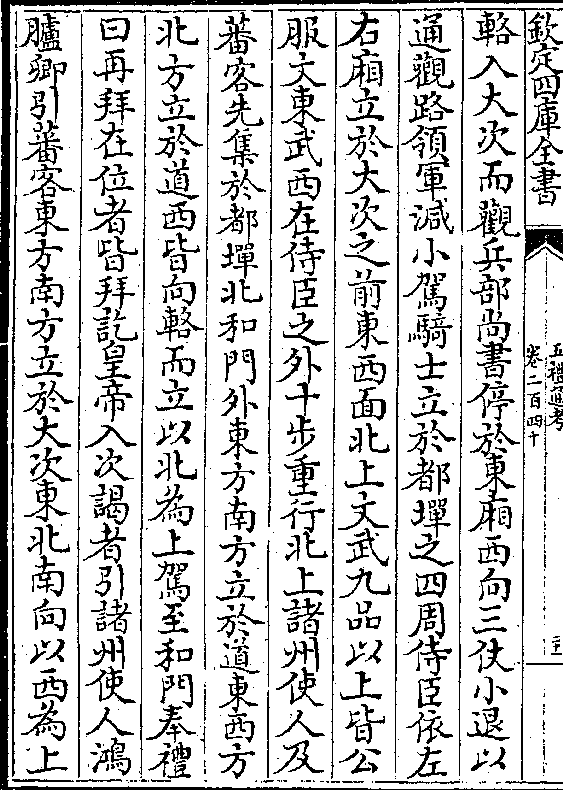 欽定四庫全書
五禮通考
卷二百四十
輅入大次而觀兵部尚書停於東廂西向三仗小退以
通觀路領軍減小駕騎士立於都墠之四周侍臣依左
右廂立於大次之前東西面北上文武九品以上皆公
服文東武西在侍臣之外十步重行北上諸州使人及
蕃客先集於都墠北和門外東方南方立於道東西方
北方立於道西皆向輅而立以北為上駕至和門奉禮
曰再拜在位者皆拜訖皇帝入次謁者引諸州使人鴻
臚卿引蕃客東方南方立於大次東北南向以西為上